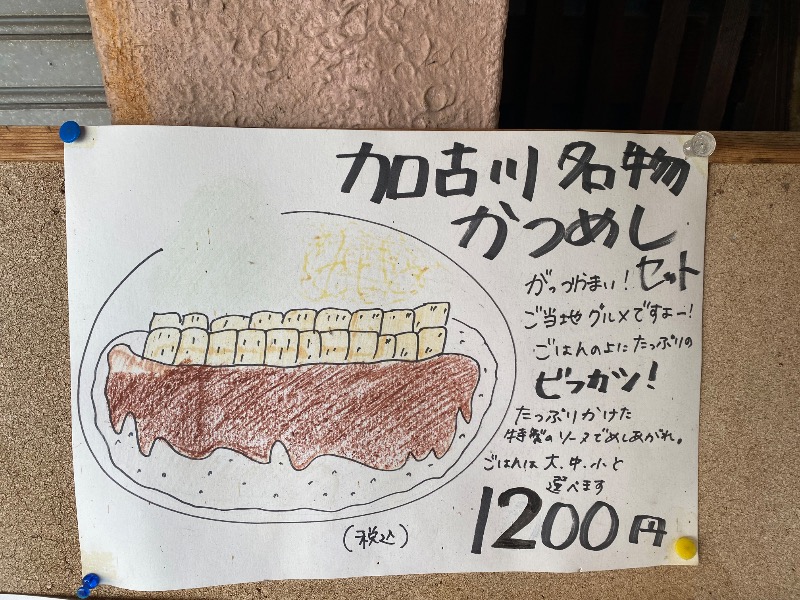 加古川名物
かつめし
セット
がっつりうまい!
ご当地グルメですよー!
ごはんの上にたっぷりの
ビフカツ!
たっぷりかけた
特製のソースでめしあがれ。
ごはんは大、中、小と
選べます
1200円
(税込)